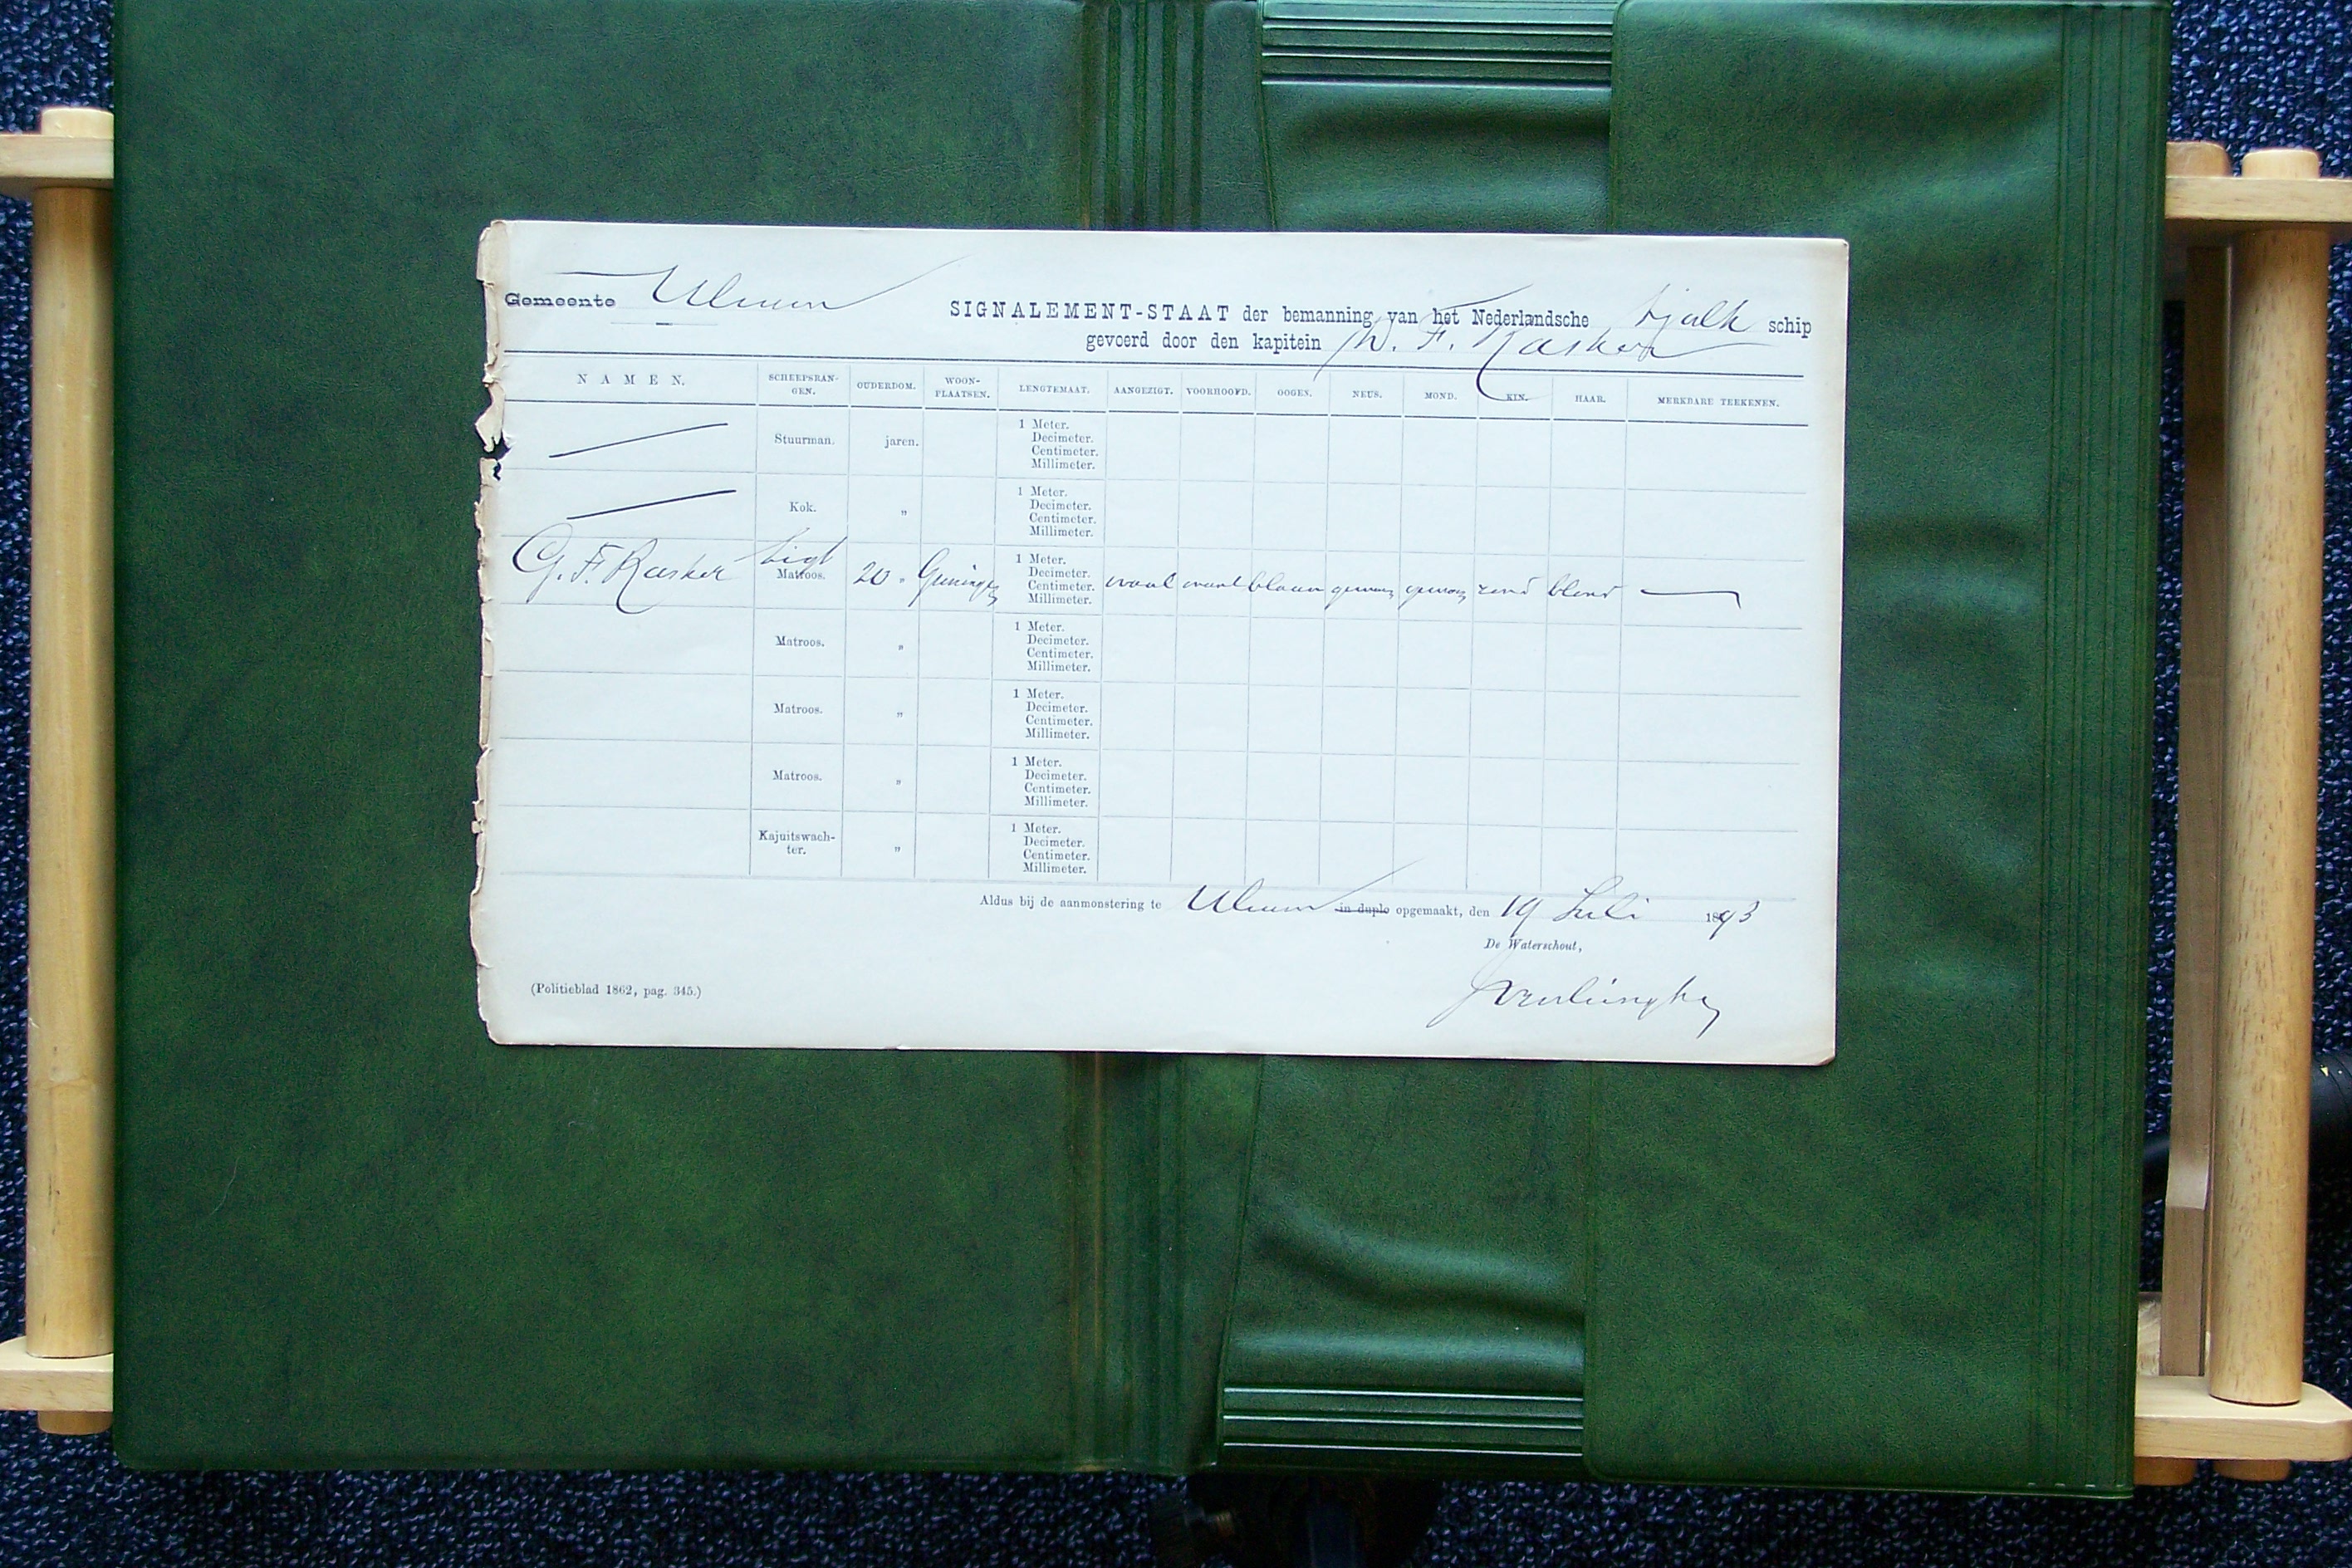 Gemeente Ulrum
SIGNALEMENT-STAAT der bemanning van het Nederlandsche tjalk schip
gevoerd door den kapitein W. F. Kasker
NAMEN. SCHEEPSRAN-GEN. OUDERDOM. WOON-PLAATSEN. LENGTEMAAT. AANGEZIGT. VOORHOOFD. OOGEN. NEUS. MOND. KIN. HAAR. MERKBARE TEEKENEN.
Stuurman. jaren. 1 Meter.
Decimeter.
Centimeter.
Millimeter.
Kok. „ 1 Meter.
Decimeter.
Centimeter.
Millimeter.
G. F. Kasker Ligt Matroos. 20 „ Groningen 1 Meter. ovaal ovaal blauw gewoon gewoon rond blond
Decimeter.
Centimeter.
Millimeter.
Matroos. „ 1 Meter.
Decimeter.
Centimeter.
Millimeter.
Matroos. „ 1 Meter.
Decimeter.
Centimeter.
Millimeter.
Matroos. „ 1 Meter.
Decimeter.
Centimeter.
Millimeter.
Kajuitswach-ter. „ 1 Meter.
Decimeter.
Centimeter.
Millimeter.
Aldus bij de aanmonstering te Ulrum in duplo opgemaakt, den 19 Juli 1893
De Waterschout,
(Politieblad 1862, pag. 345.)